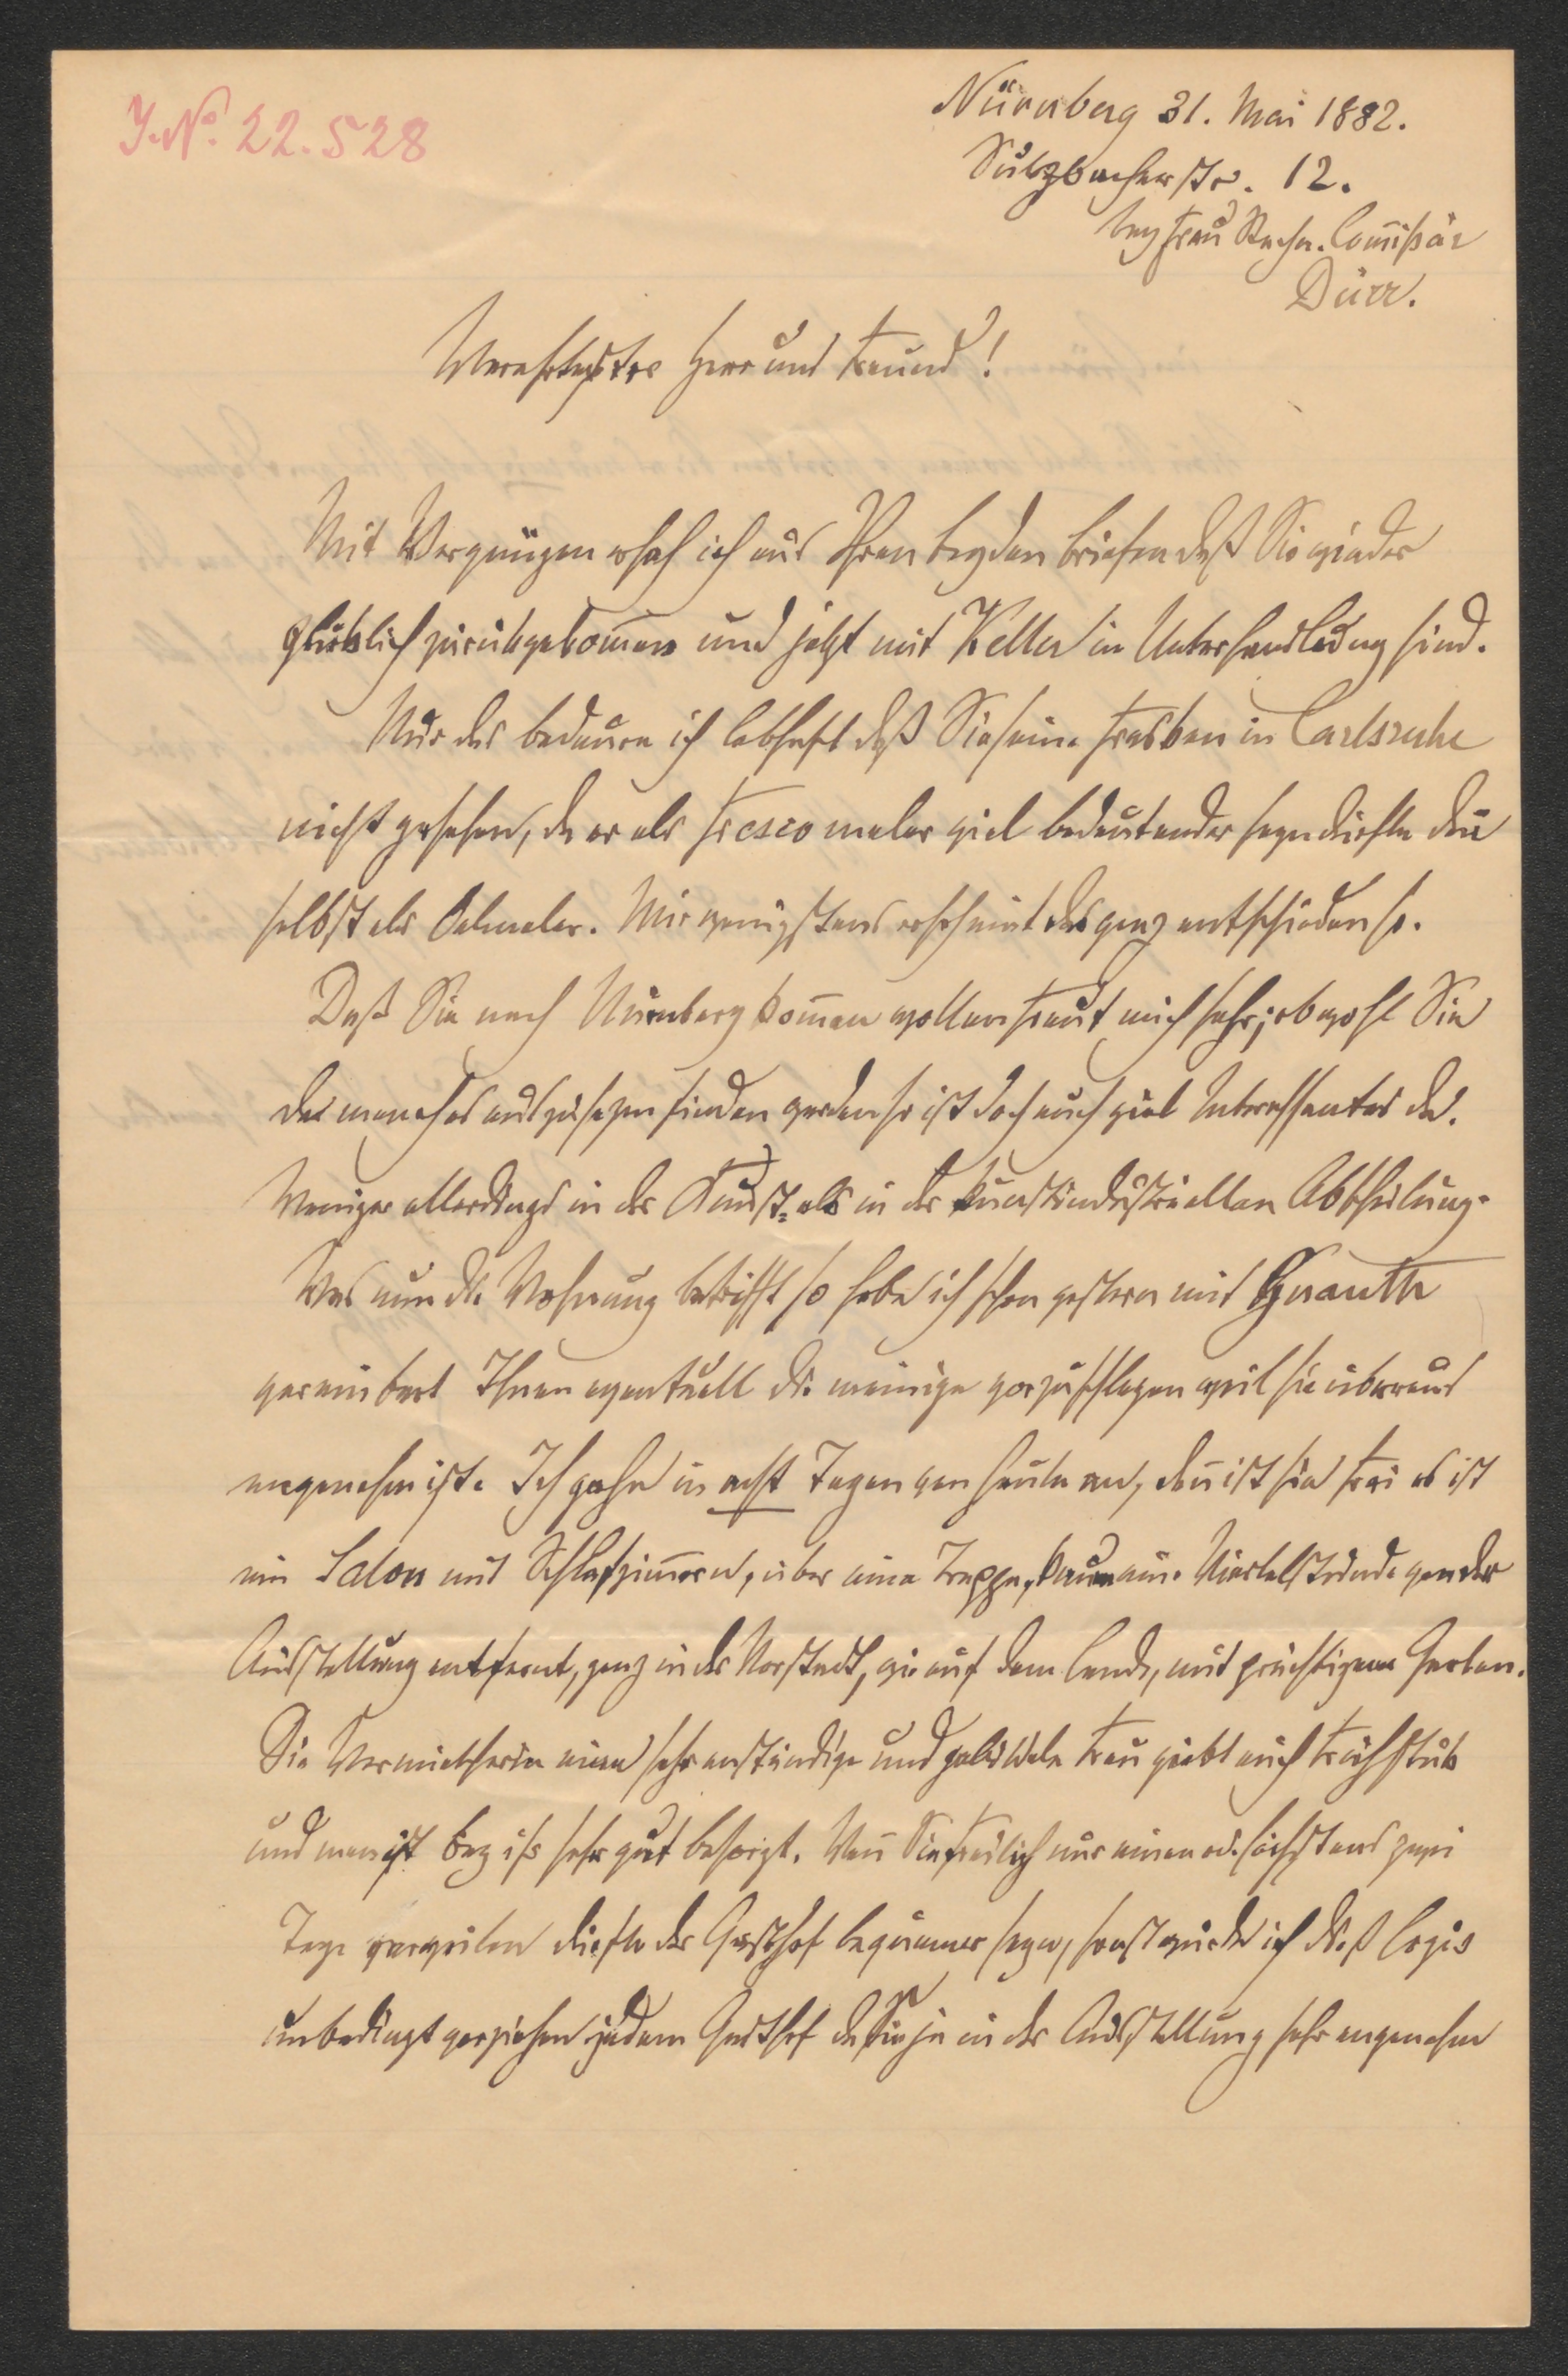 J. No. 22.528
Nürnberg 31. Mai 1882.
Sulzbacherstr. 12.
bey Frau Rechn. Com̄issär
Dürr.
Verehrtester Herr und Freund!
Mit Vergnügen ersah ich aus Ihren beyden Briefen daß Sie wieder
glüklich zurükgekom̄en und jetzt mit Keller in Unterhandlung sind.
Nur das bedaure ich lebhaft daß Sie seine Fresken in Carlsruhe
nicht gesehen, da er als Frescomaler viel bedeutender seyn dürfte den̄
selbst als Oelmaler. Mir wenigstens erscheint das ganz entschieden so.
Daß Sie nach Nürnberg kom̄en wollen freut mich sehr; obwohl Sie
da manches auszusezen finden werden so ist doch auch viel Interessantes da.
Weniger allerdings in der Kunst- als in der kunstindustriellen Abtheilung.
Was nun die Wohnung betrifft so habe ich schon gestern mit Gnauth
vereinbart Ihnen eventuell die meinige vorzuschlagen weil sie überaus
angenehm ist. Ich gehe in acht Tagen von heute an, dan̄ ist sie frei es ist
ein Salon mit Schlafzim̄ern, über eine Treppe, kaum eine Viertelstunde von der
Ausstellung entfernt, ganz in der Vorstadt, wie auf dem Lande, mit prächtigem Garten.
Die Vermietherin eine sehr anständige und gebildete Frau giebt auch Frühstük
und man ist bey ihr sehr gut besorgt. Wen̄ Sie freilich nur einen od. höchstens zwei
Tage verweilen dürfte der Gasthof bequemer seyn, sonst würde ich dieß Logis
unbedingt vorziehen jedem Gasthof da Sie ja in der Ausstellung sehr angenehm